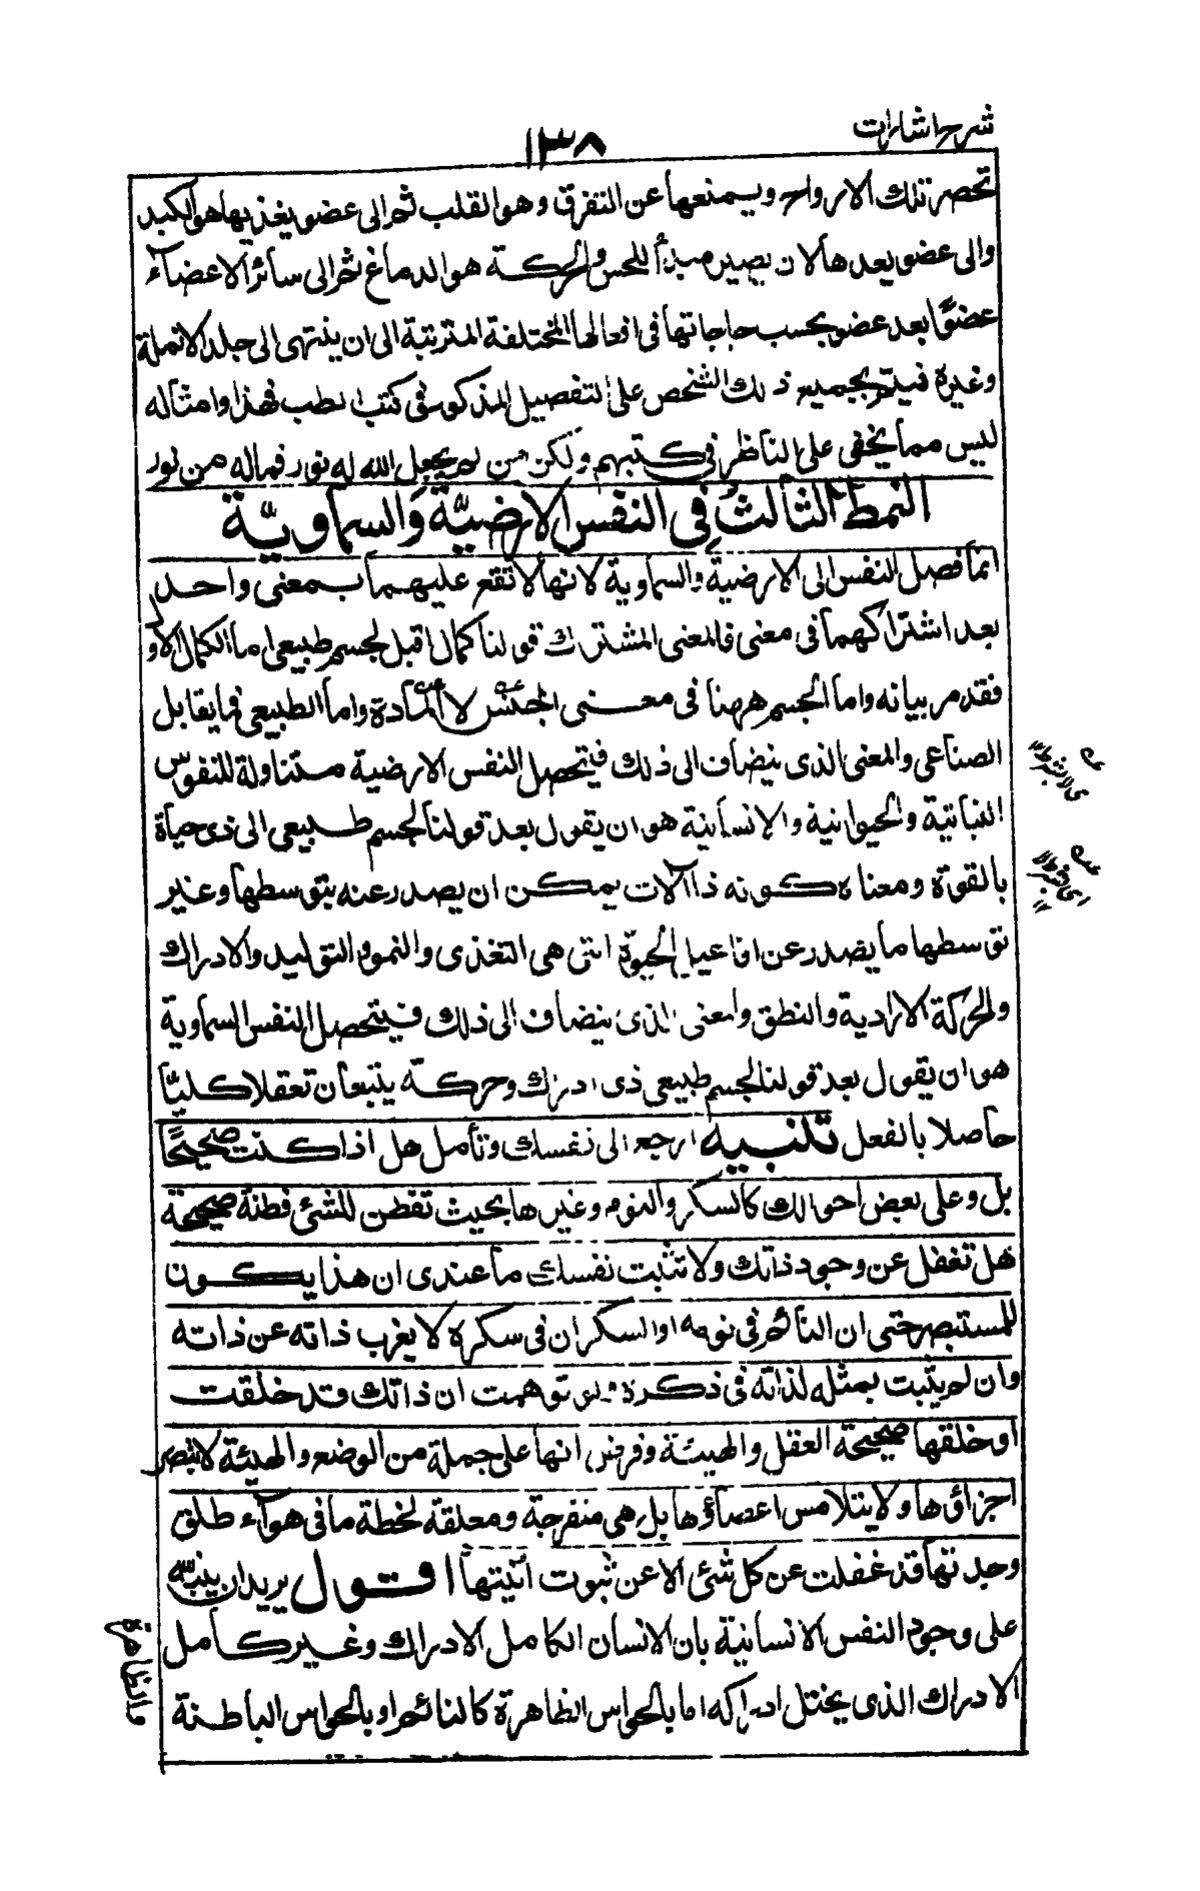 شرح اشارات
١٣٨
تحصر تلك الارواح ويمنعها عن التفرق وهو القلب ثم الى عضو يغذيها هو الكبد
والى عضو يعدها لان يصير مبدأ للحس والحركة هو الدماغ ثم الى سائر الاعضاء
عضوًا بعد عضو بحسب حاجاتها فى افعالها المختلفة المترتبة الى ان ينتهى الى جلد الانملة
وغيره فيتم بجميع ذلك الشخص على التفصيل المذكور فى كتب الطب فهذا وامثاله
ليس مما يخفى على الناظر فى كتبهم ولكن من لم يجعل الله له نور فماله من نور
النمط الثالث فى النفس الارضيّة والسماويّة
انما فصل النفس الى الارضية والسماوية لانها لا تقع عليهما بمعنى واحد
بعد اشتراكهما فى معنى فالمعنى المشترك قولنا كمال اقبل لجسم طبيعى اما الكمال الاول
فقد مر بيانه واما الجسم ههنا فى معنى الجنس لا المادة واما الطبيعى فما يقابل
الصناعى والمعنى الذى ينضاف الى ذلك فيتحصل النفس الارضية متناولة للنفوس
النباتية والحيوانية والانسانية هو ان يقول بعد قولنا لجسم طبيعى الى ذى حياة
بالقوة ومعناه كونه ذا آلات يمكن ان يصدر عنه بتوسطها وغير
توسطها ما يصدر عن افاعيل الحيوة التى هى التغذى والنمو والتوليد والادراك
والحركة الارادية والنطق والمعنى الذى ينضاف الى ذلك فيتحصل النفس السماوية
هو ان يقول بعد قولنا لجسم طبيعى ذى ادراك وحركة يتبعان تعقلا كليّا
حاصلا بالفعل تنبيه ارجع الى نفسك وتأمل هل اذا كنت صحيحًا
بل وعلى بعض احوالك كالسكر والنوم وغيرها بحيث تفطن للشئ فطنة صحيحة
هل تغفل عن وجود ذاتك ولا تثبت نفسك ما عندى ان هذا يكون
للمستبصر حتى ان النائم فى نومه او السكران فى سكره لا يغرب ذاته عن ذاته
وان لم يثبت بمثله لذاته فى ذكره ولو توهمت ان ذاتك قد خلقت
او خلقها صحيحة العقل والهيئة وفرض انها على جملة من الوضع والهيئة لا تبصر
اجزاؤها ولا يتلامس اعضاؤها بل هى منفرجة ومعلقة لخطة ما فى هوآء طلق
وجدتها قد غفلت عن كل شئ الا عن ثبوت انيتها اقول يريد ان ينبّه
على وجود النفس الانسانية بان الانسان الكامل الادراك وغير كامل
الادراك الذى يختل ادراكه اما بالحواس الظاهرة كالنائم او بالحواس الباطنة